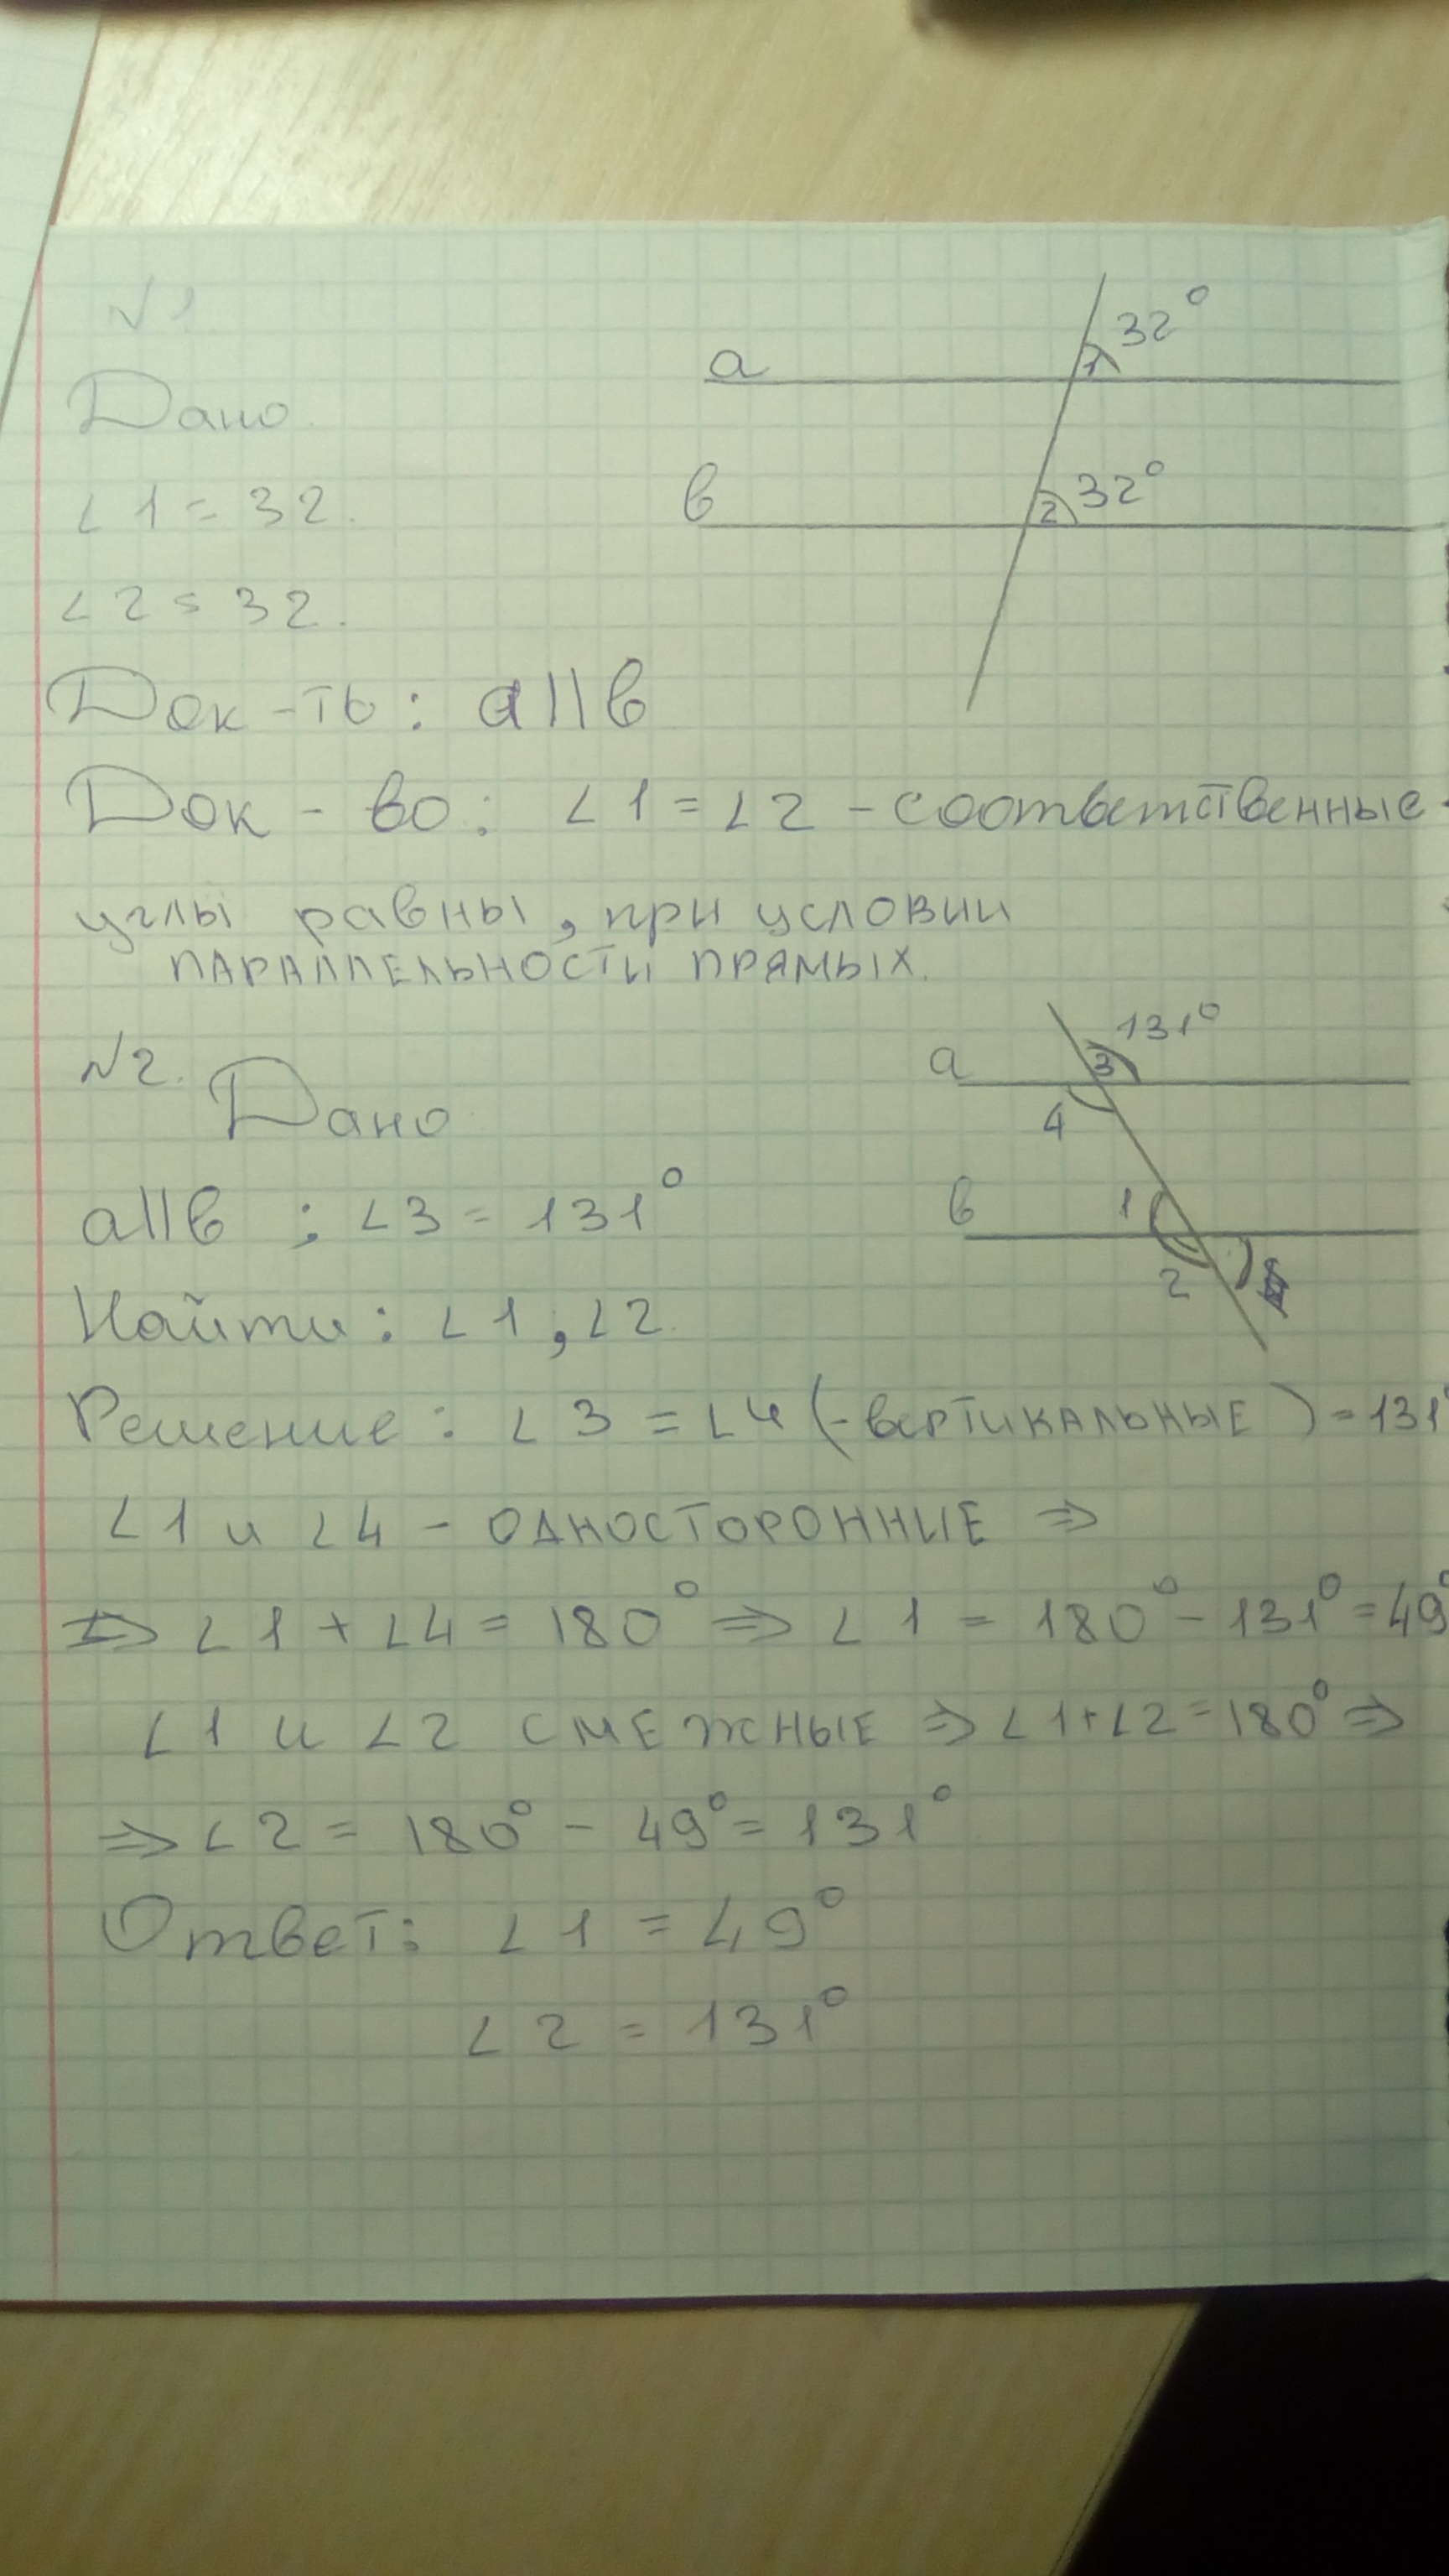 №1
a 32°
1
Дано.
в 32°
2
∠1 = 32.
∠2 = 32.
Док-ть: a||в
Док-во: ∠1 = ∠2 – соответственные
углы равны, при условии
параллельности прямых.
№2. Дано
a 3 131°
4
a||в ; ∠3 = 131°
в 1
2
Найти: ∠1; ∠2.
Решение: ∠3 = ∠4 (-вертикальные) = 131°
∠1 и ∠4 – односторонние ⇒
⇒ ∠1 + ∠4 = 180° ⇒ ∠1 = 180° – 131° = 49°
∠1 и ∠2 смежные ⇒ ∠1+∠2 = 180° ⇒
⇒ ∠2 = 180° – 49° = 131°
Ответ: ∠1 = 49°
∠2 = 131°